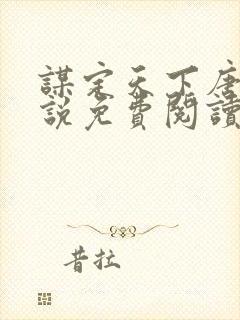 謀定天下唐
說免費閱讀
昔拉